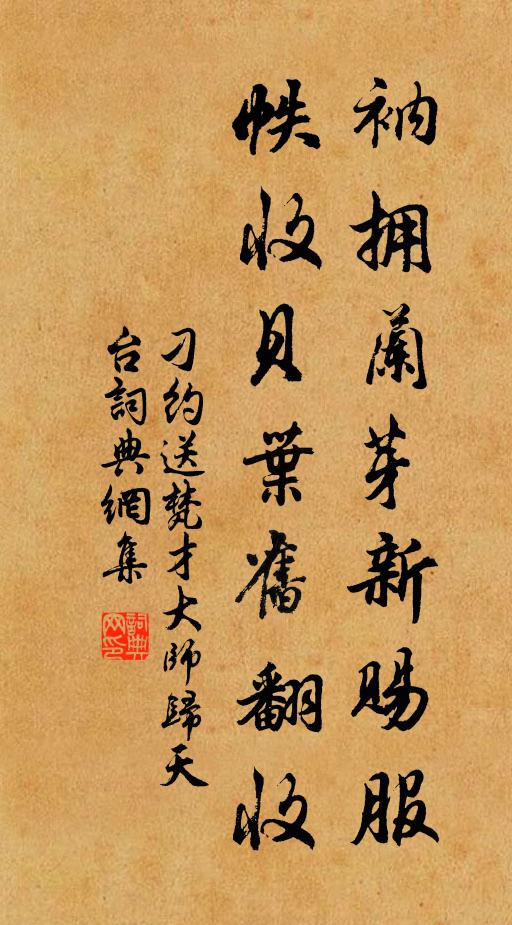 衲拥蘭芽新賜服
帙收貝葉舊翻收
刁約送梵才大師歸天
台詞典網集
詞典網印